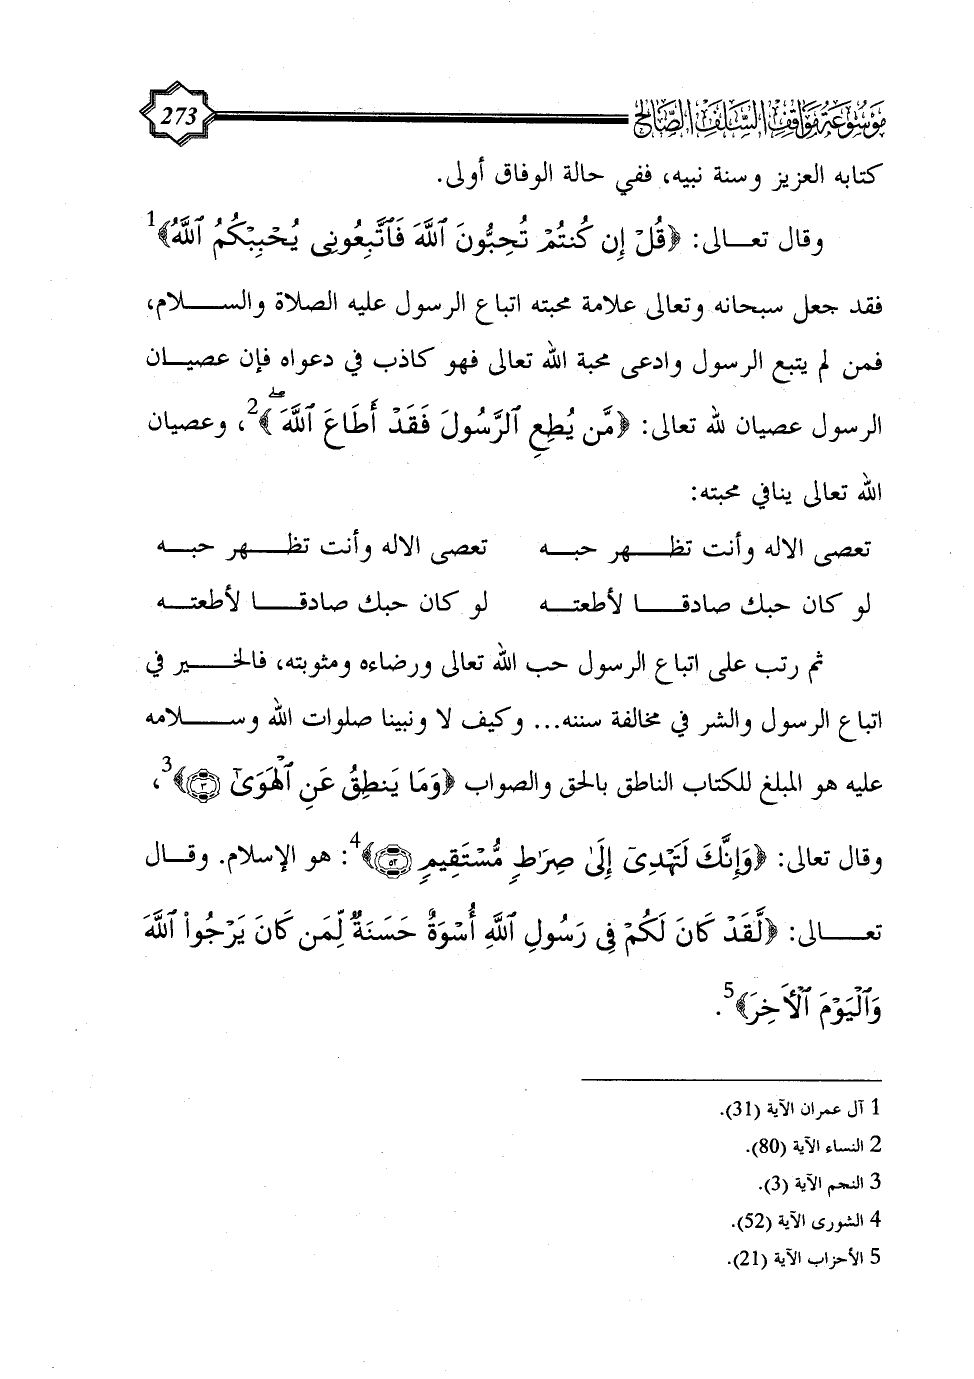 موسوعة مواقف السلف الصالح 273
كتابه العزيز وسنة نبيه، ففي حالة الوفاق أولى.
وقال تعــالى: ﴿قُلْ إِن كُنتُمْ تُحِبُّونَ ٱللَّهَ فَٱتَّبِعُونِى يُحْبِبْكُمُ ٱللَّهُ﴾1
فقد جعل سبحانه وتعالى علامة محبته اتباع الرسول عليه الصلاة والســـلام،
فمن لم يتبع الرسول وادعى محبة الله تعالى فهو كاذب في دعواه فإن عصيــان
الرسول عصيان لله تعالى: ﴿مَّن يُطِعِ ٱلرَّسُولَ فَقَدْ أَطَاعَ ٱللَّهَ ۖ﴾2، وعصيان
الله تعالى ينافي محبته:
تعصى الاله وأنت تظــهر حبــه تعصى الاله وأنت تظــهر حبــه
لو كان حبك صادقــا لأطعتــه لو كان حبك صادقــا لأطعتــه
ثم رتب على اتباع الرسول حب الله تعالى ورضاءه ومثوبته، فالخــير في
اتباع الرسول والشر في مخالفة سننه... وكيف لا ونبينا صلوات الله وســلامه
عليه هو المبلغ للكتاب الناطق بالحق والصواب ﴿وَمَا يَنطِقُ عَنِ ٱلْهَوَىٰٓ ٣﴾3،
وقال تعالى: ﴿وَإِنَّكَ لَتَهْدِىٓ إِلَىٰ صِرَٰطٍ مُّسْتَقِيمٍ ٥٢﴾4: هو الإسلام. وقــال
تعــالى: ﴿لَّقَدْ كَانَ لَكُمْ فِى رَسُولِ ٱللَّهِ أُسْوَةٌ حَسَنَةٌ لِّمَن كَانَ يَرْجُوا۟ ٱللَّهَ
وَٱلْيَوْمَ ٱلْأَخِرَ﴾5.
1 آل عمران الآية (31).
2 النساء الآية (80).
3 النجم الآية (3).
4 الشورى الآية (52).
5 الأحزاب الآية (21).